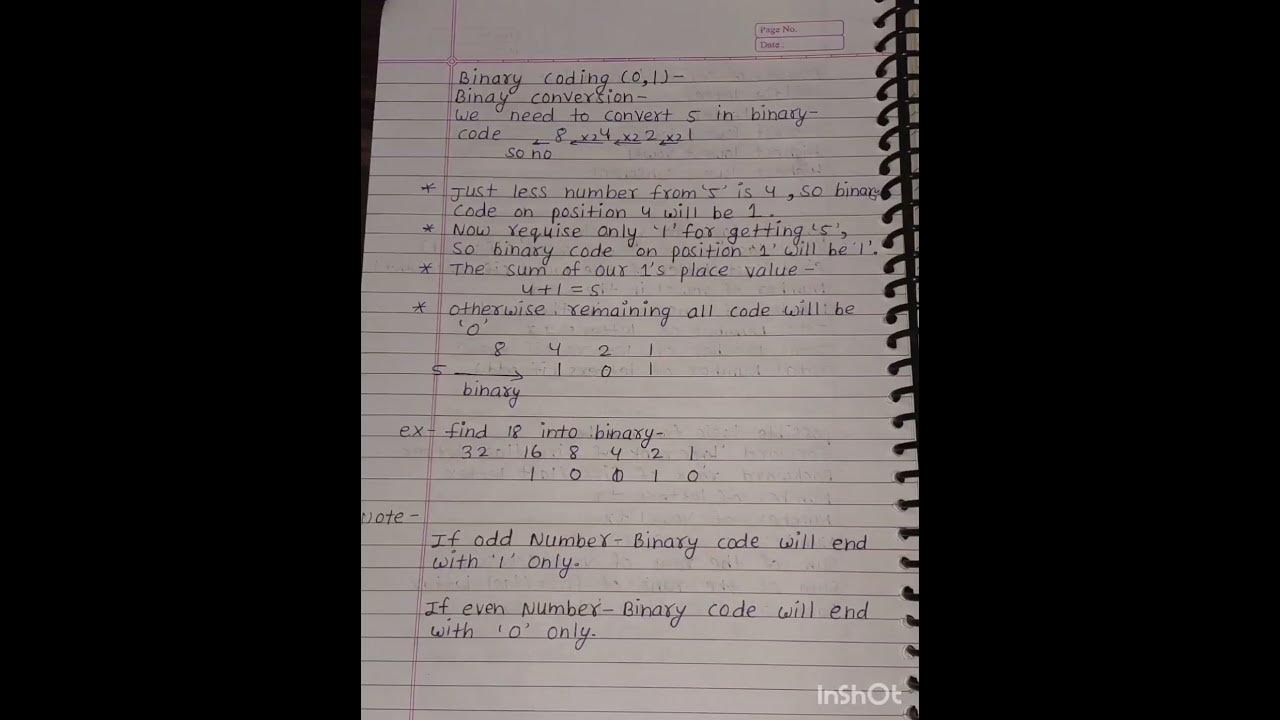 Page No.
Date
Binary coding (0,1)-
Binay conversion-
we need to convert 5 in binary-
code ← 8 ←x2 4 ←x2 2 ←x2 1
so no
* Just less number from '5' is 4, so binary
code on position 4 will be 1.
* Now requise only '1' for getting '5',
So binary code on position '1' will be '1'.
* The sum of our 1's place value-
4+1=5
* otherwise remaining all code will be
'0'
8 4 2 1
5 → 1 0 1
binary
ex- find 18 into binary-
32 16 8 4 2 1
1 0 0 1 0
Note-
If odd Number- Binary code will end
with '1' only.
If even Number- Binary code will end
with '0' only.
InShOt